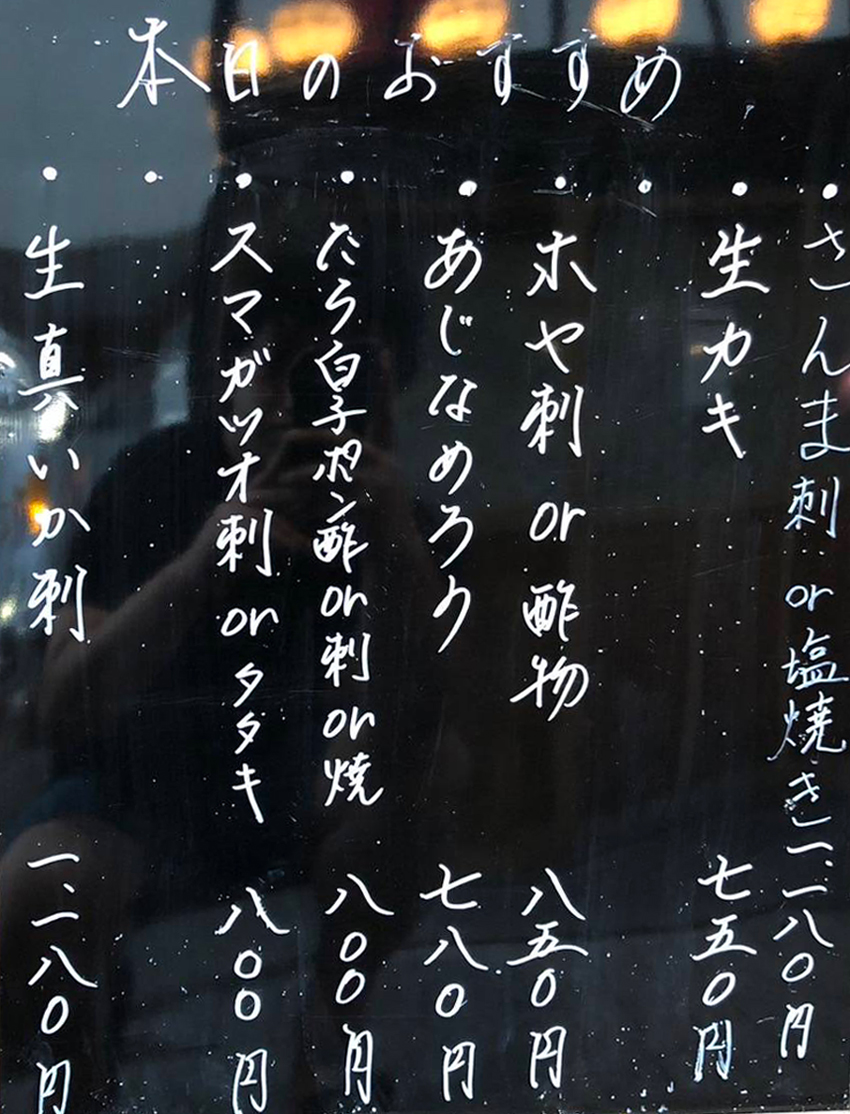 本日のおすすめ
・さんま刺 or 塩焼き 一、一八〇円
・生カキ 七五〇円
・
・ホヤ刺 or 酢物 八五〇円
・あじなめろう 七八〇円
・たら白子ポン酢or刺or焼 八〇〇円
・スマガツオ刺orタタキ 八〇〇円
・
・生真いか刺 一、一八〇円